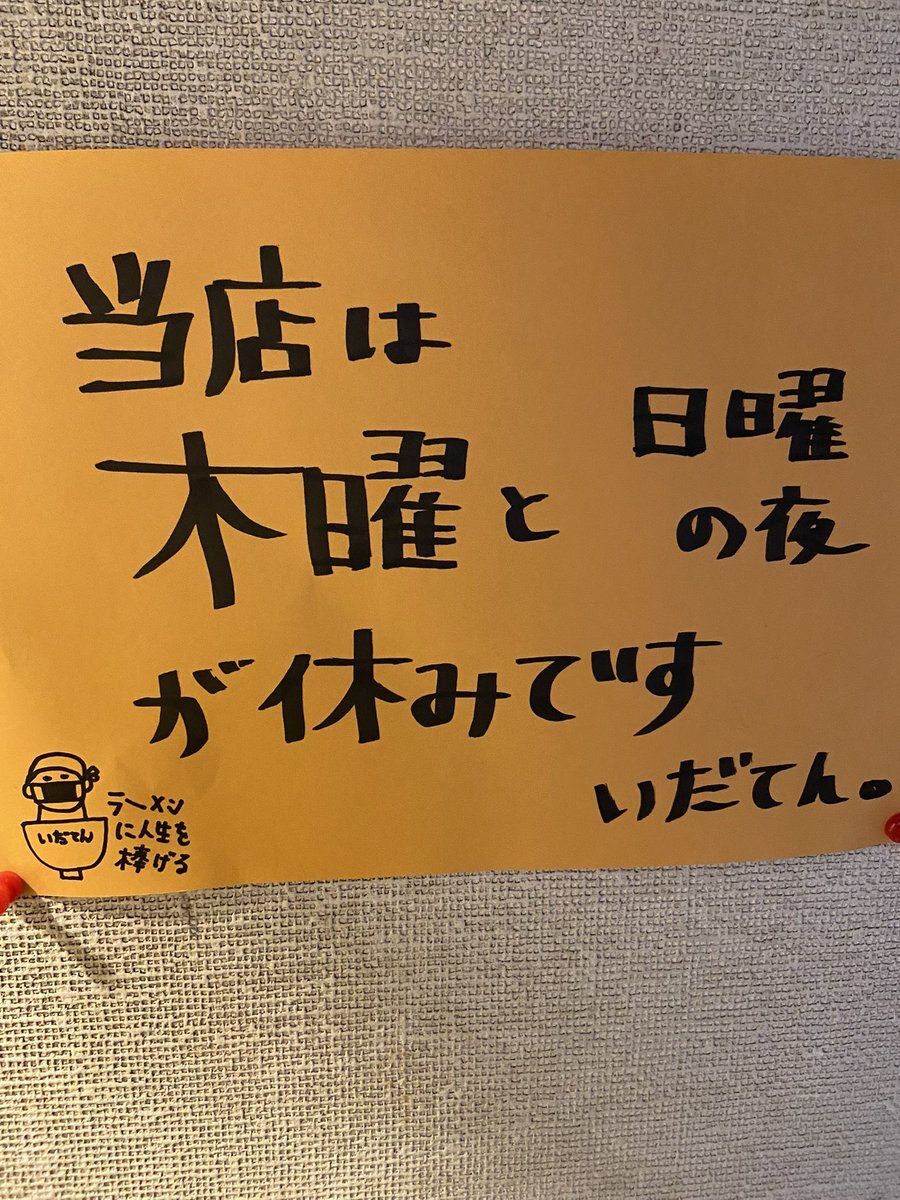 当店は
木曜と 日曜
の夜
が休みです
いだてん。
いだてん
ラーメン
に人生を
棒げる